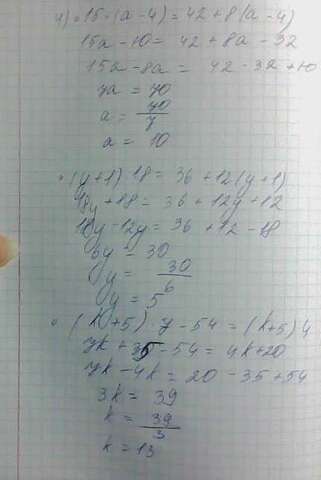 4) • 15 · (a - 4) = 42 + 8(a - 4)
15a - 10 = 42 + 8a - 32
15a - 8a = 42 - 32 + 10
7a = 70
a = 70/7
a = 10
• (y + 1) 18 = 36 + 12(y + 1)
18y + 18 = 36 + 12y + 12
18y - 12y = 36 + 12 - 18
6y = 30
y = 30/6
y = 5
• (k + 5) · 7 - 54 = (k + 5) 4
7k + 35 - 54 = 4k + 20
7k - 4k = 20 - 35 + 54
3k = 39
k = 39/3
k = 13